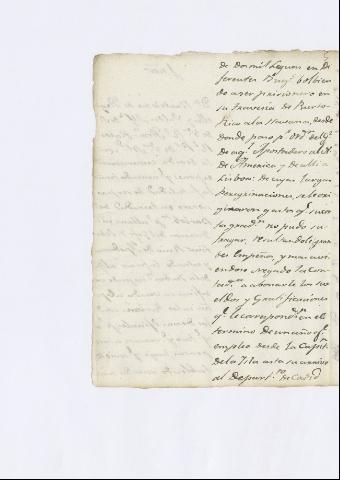 de dos mil leguas en Di
ferentes Buqs. bolbien
do a ser prisionero en
su travesia de Puerto
Rico a la Havana, desde
donde paso pr. Orn. del
de aql. Apostadero al N.
de America y de alli a
Lisboa: de cuyas largas
Peregrinaciones, se le ori
ginaron gastos qe. su corta
no pudo su
fragar, resultandole gran
des Empeños, y mas aun
endose negado la Con
a abonarle los su
eldos y Gratificaciones
qe. le correspondian en el
termino de un año qe.
empleo desde la Capit.
de la Isla asta su arrivo
al Departto. de Cadiz